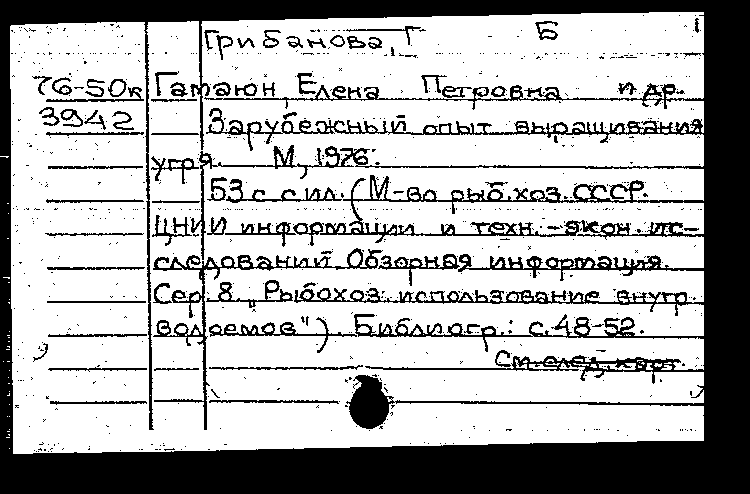 Грибанова, Г Б
76-50к Гамаюн, Елена Петровна и др.
3942 Зарубежный опыт выращивания
угря. М, 1976.
53 с с ил. (М-во рыб. хоз. СССР.
ЦНИИ информации и техн.-экон. ис-
следований. Обзорная информация.
Сер. 8. "Рыбохоз. использование внутр.
водоемов"). Библиогр.: с. 48-52.
См. след. карт.